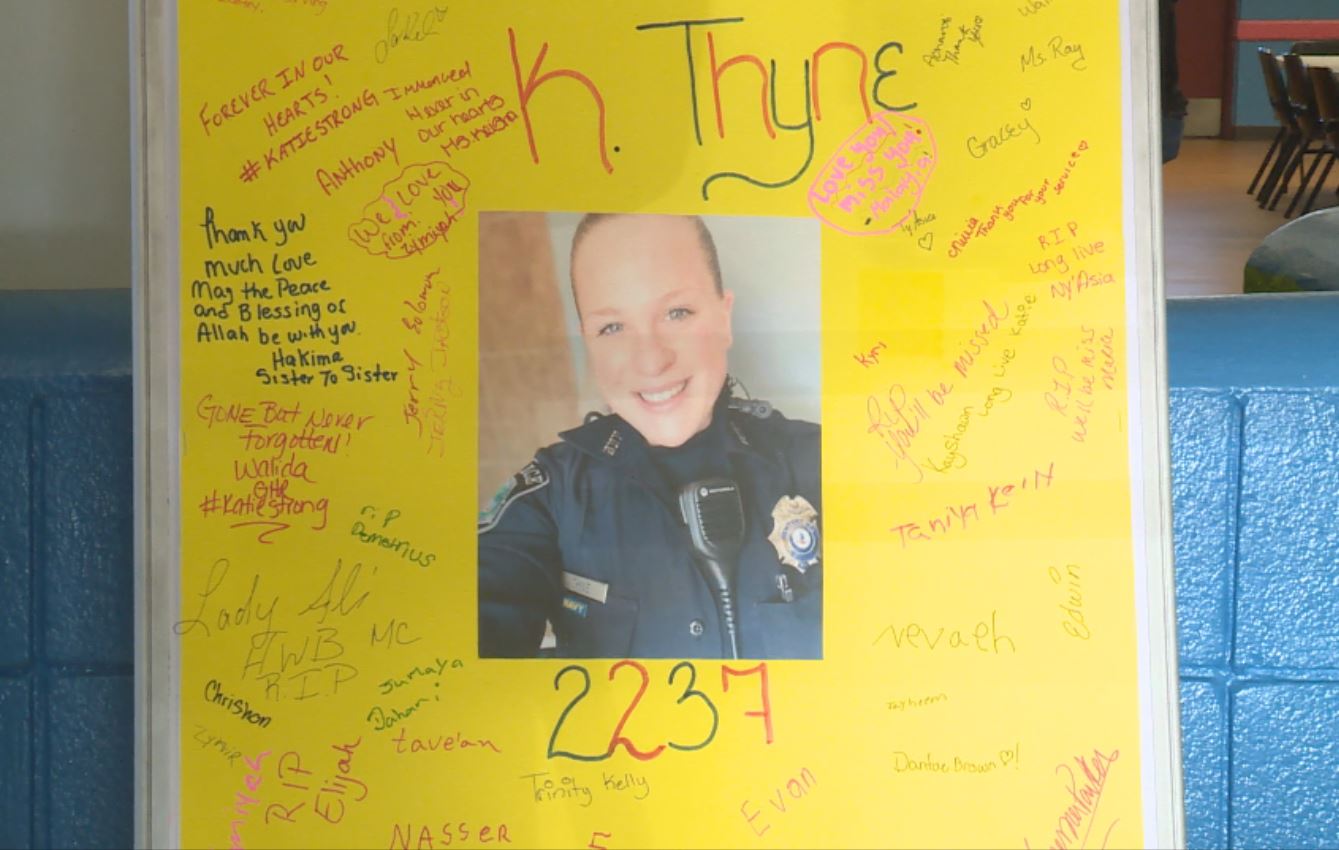 K. Thyne
FOREVER IN OUR
HEARTS!
#KATIESTRONG
ANTHONY
Immanced
4ever in
our hearts
Ms. Keisha
We Love
YOU
from:
Zymiyah
Thank you
much Love
May the Peace
and Blessing of
Allah be with you.
Hakima
Sister To Sister
Jerry Solomon
GONE But Never
forgotten!
Walida
#Katiestrong
rip
Demetrius
Lady Ali
HWB MC
R.I.P
Chrishon
Zymir
Jumaya
Dahari
tave'an
RIP
Elijah
NASSER
2237
Trinity Kelly
Evan
Love you!
miss you!
Thank you
Ms. Ray
Gracey
Thank you for your service
R.I.P
Long live
Ny'Asia
Kini
RIP
You'll be missed
Kayshawn Long Live Katie
R.I.P
we'll be miss
Taniya Kelly
Edwin
Nevaeh
Jayheem
Dantae Brown!
NAVY